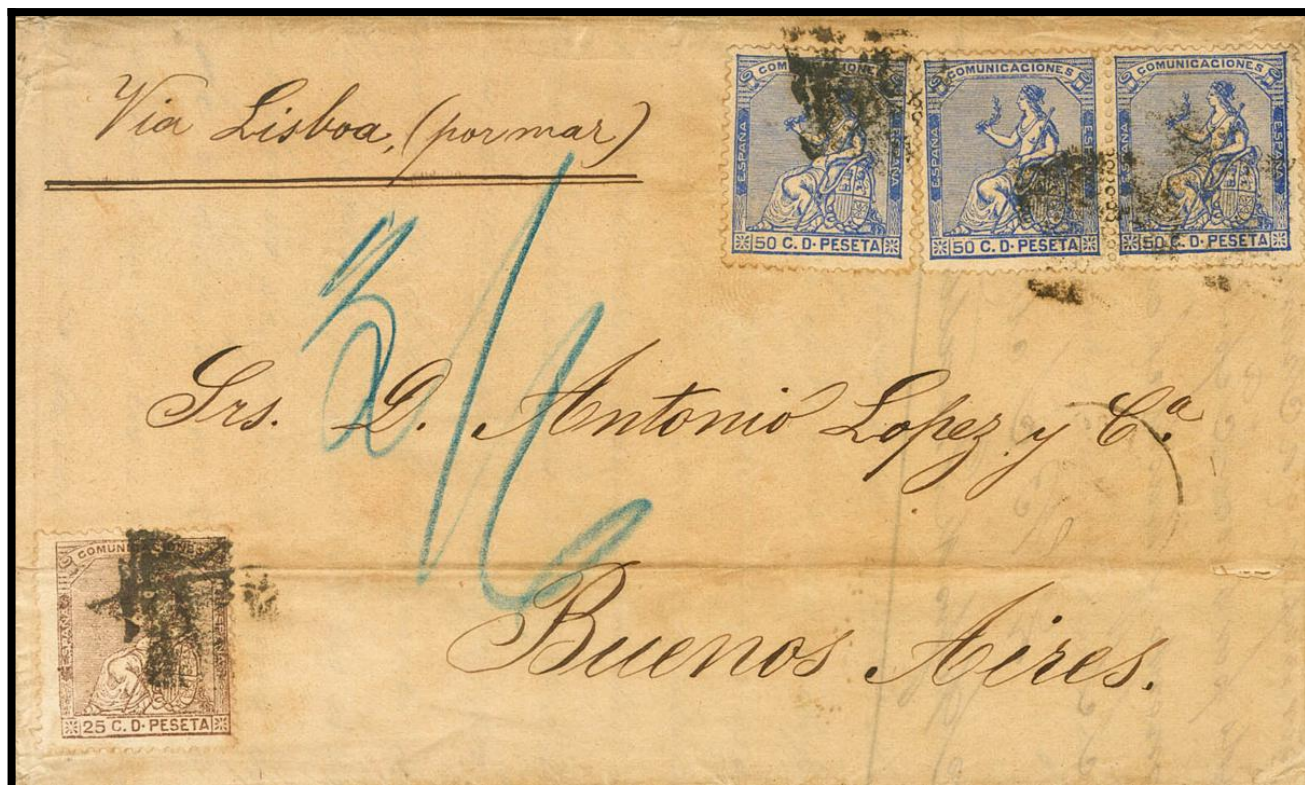 Via Lisboa, (por mar)
COMUNICACIONES
ESPAÑA ESPAÑA
50 C. D. PESETA
COMUNICACIONES
ESPAÑA ESPAÑA
50 C. D. PESETA
COMUNICACIONES
ESPAÑA ESPAÑA
50 C. D. PESETA
Srs. D. Antonio Lopez y C.ª
Buenos Aires.
COMUNICACIONES
ESPAÑA ESPAÑA
25 C. D. PESETA